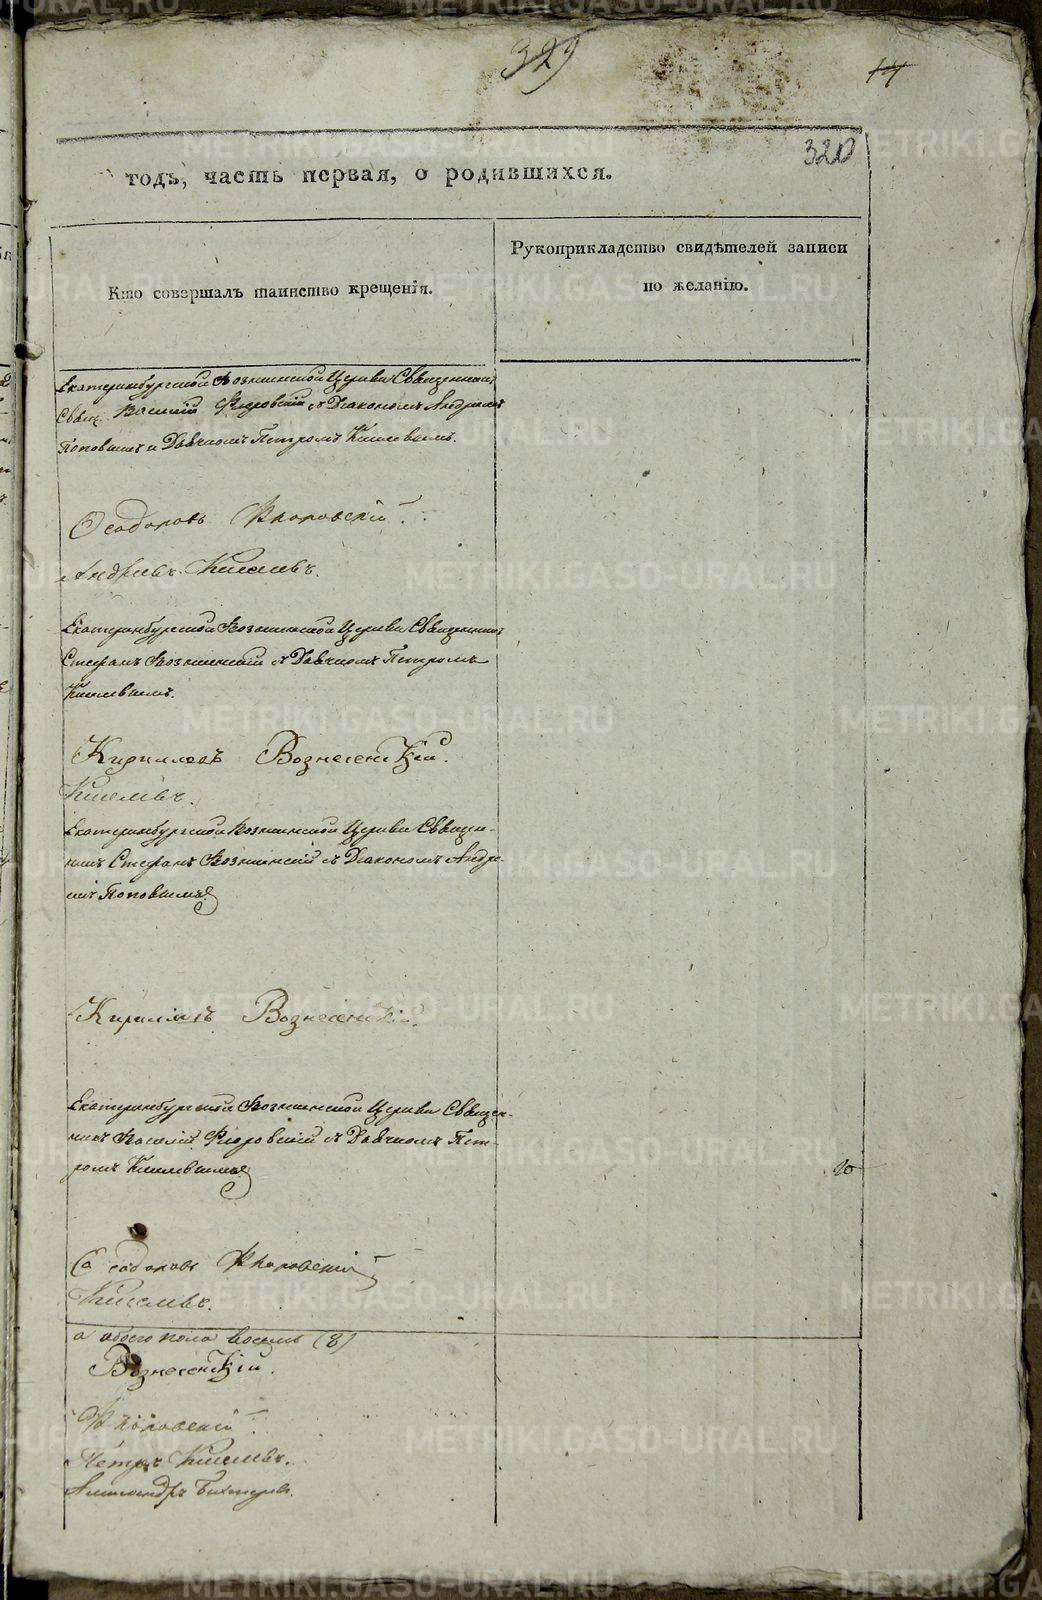 329
14
320
годъ, часть первая, о родившихся.
Кто совершалъ таинство крещенія.
Рукоприкладство свидѣтелей записи
по желанію.
Екатеринбургской Вознесенской Церкви Священникъ
Свящ. Василій Флоровскій съ Діакономъ Андреемъ
Поповымъ и Дьячкомъ Петромъ Киселевымъ.
Ѳеодоровъ Флоровскій.
Киселевъ.
Екатеринбургской Вознесенской Церкви Священникъ
Стефанъ Вознесенскій съ Дьячкомъ Петромъ
Киселевымъ.
Кирилловъ Вознесенскій.
Киселевъ.
Екатеринбургской Вознесенской Церкви Священ-
никъ Стефанъ Вознесенскій съ Діакономъ Андре-
емъ Поповымъ
Кирилловъ Вознесенскій.
Екатеринбургской Вознесенской Церкви Священ-
никъ Василій Флоровскій съ Дьячкомъ Пет-
ромъ Киселевымъ
20
Ѳеодоровъ Флоровскій
Киселевъ.
а обоего пола восемь (8)
Вознесенскій.
Флоровскій.
Петръ Киселевъ.
Александръ
METRIKI.GASO-URAL.RU